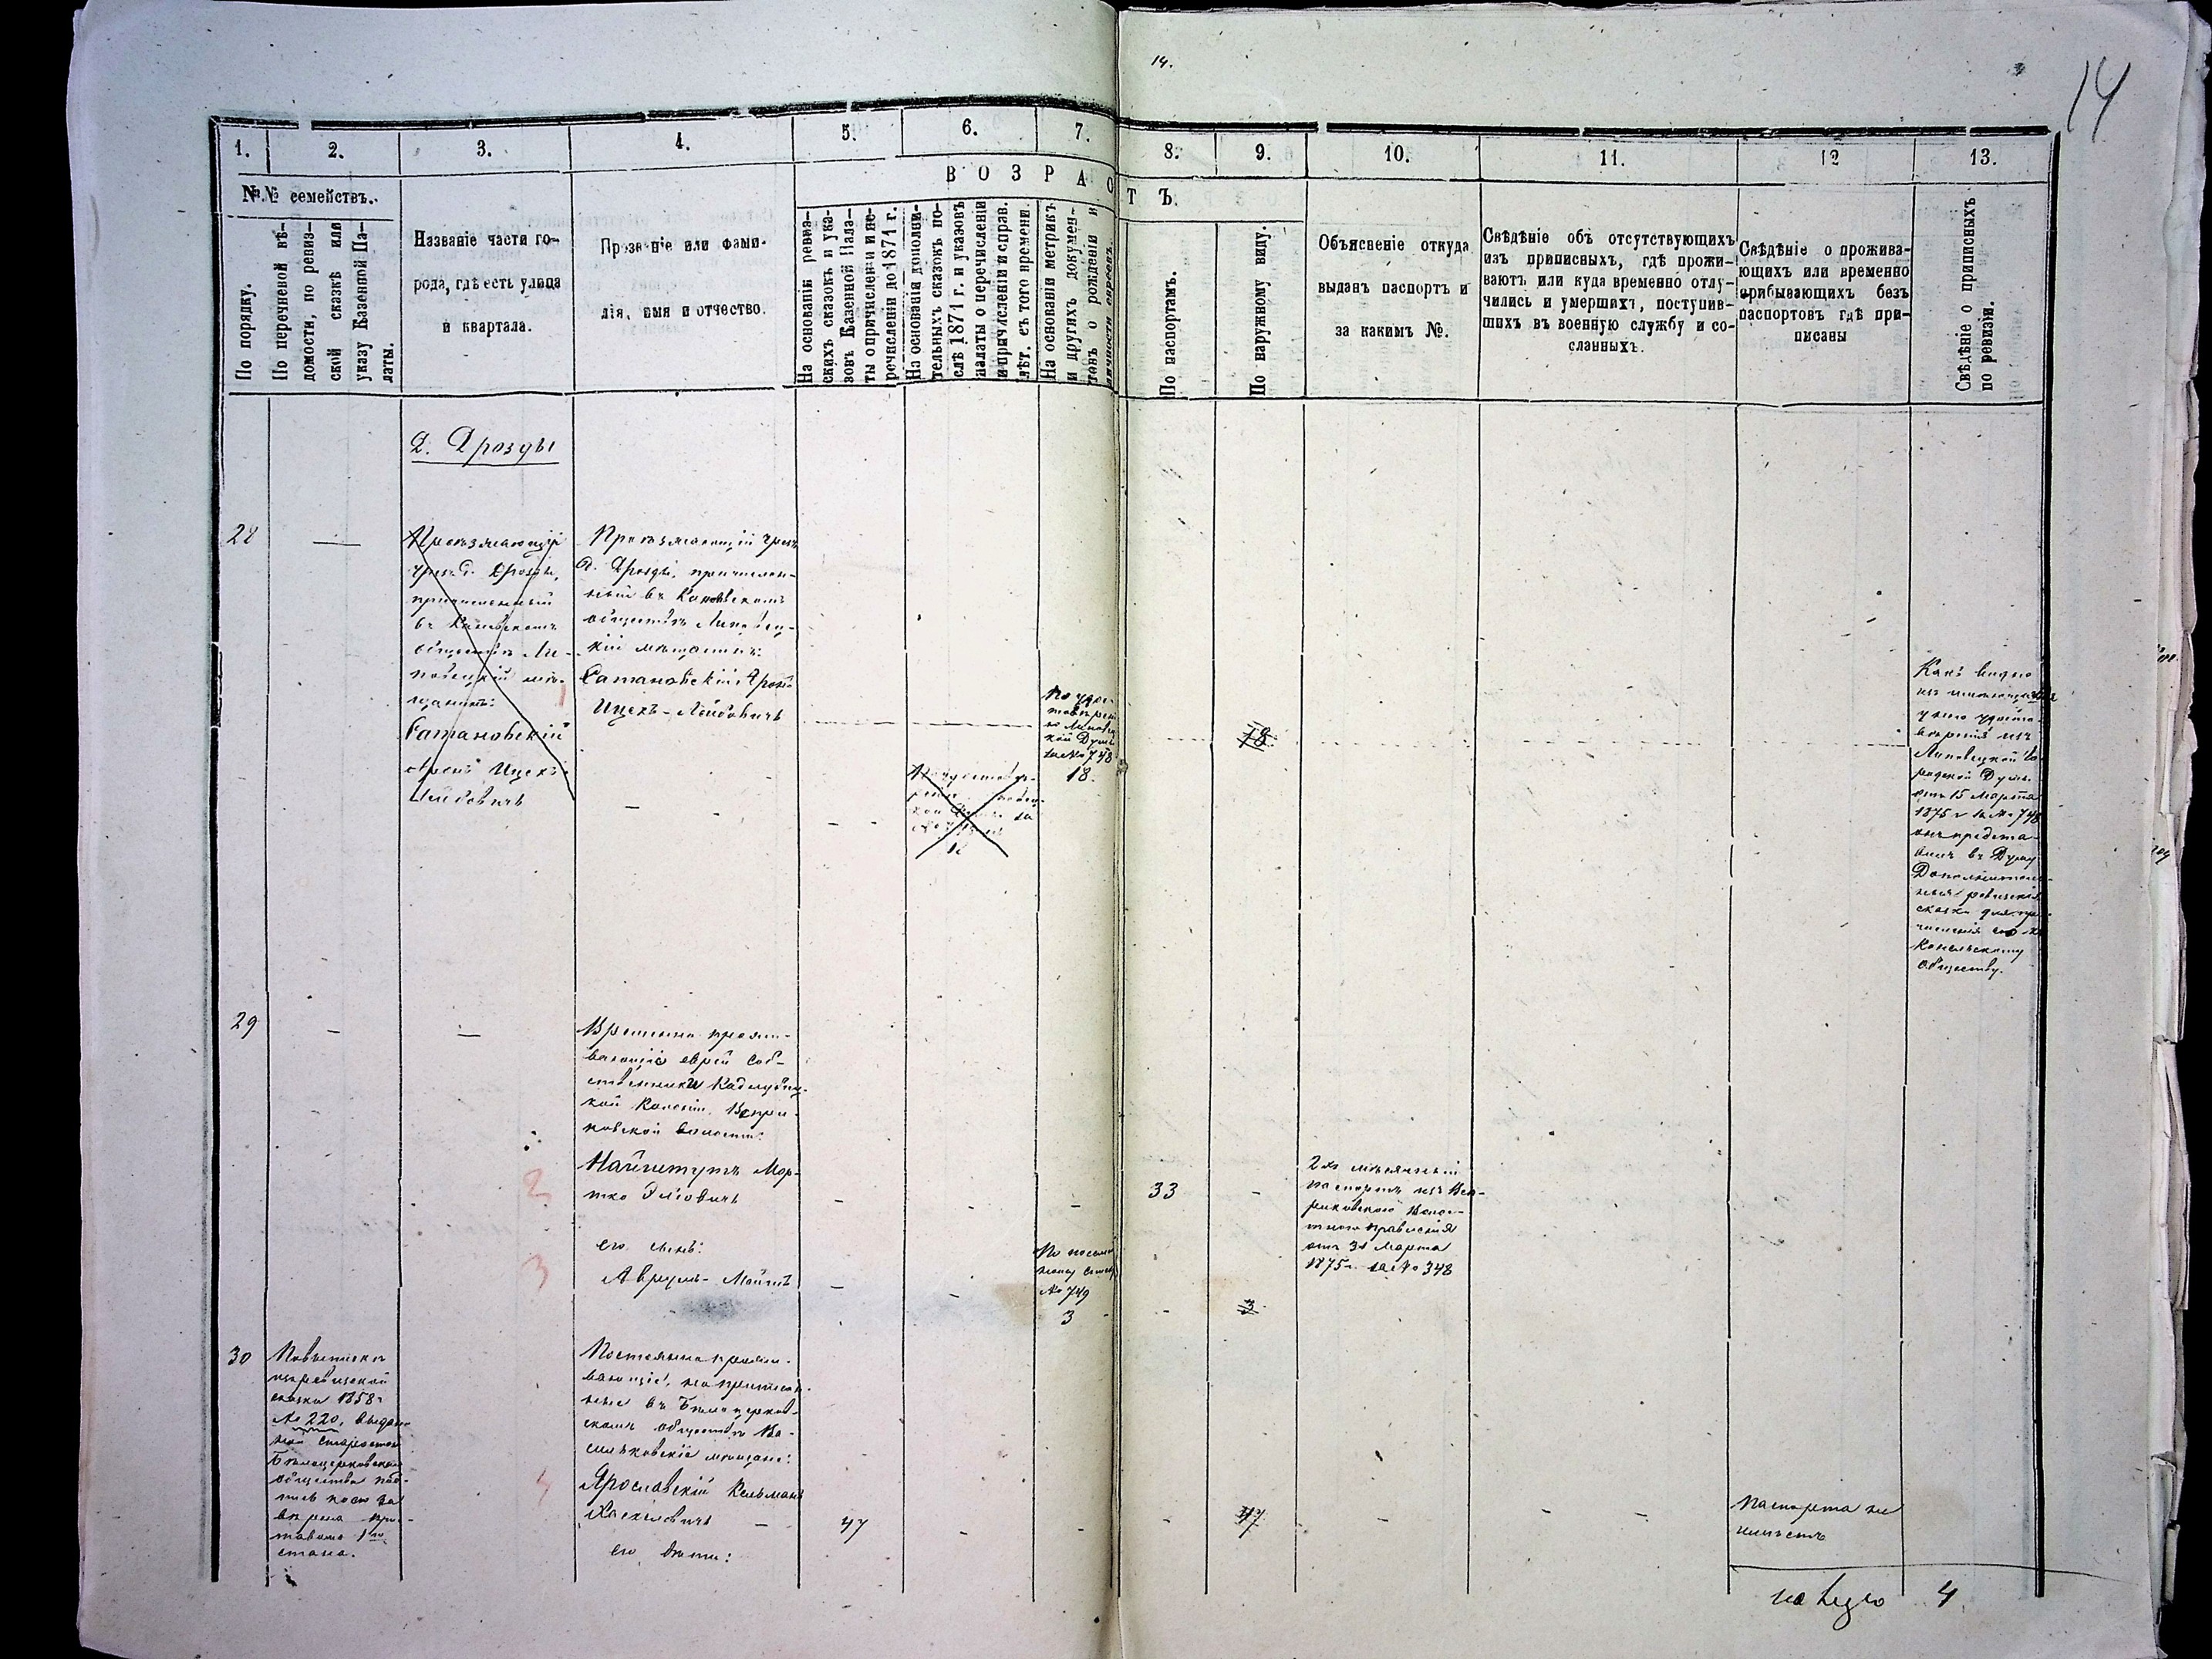 14.
14
1. 2. 3. 4. 5. 6. 7. 8. 9. 10. 11. 12 13.
№№ семействъ.
В О З Р А С Т Ъ.
По порядку.
По перечневой вѣ-
домости, по ревиз-
ской сказкѣ или
указу Казенной Па-
латы.
Названіе части го-
рода, гдѣ есть улица
и квартала.
Прозваніе или фами-
лія, имя и отчество.
На основаніи ревиз-
скихъ сказокъ и ука-
зовъ Казенной Пала-
ты о причисленіи и пе-
речисленіи до 1871 г.
На основаніи дополни-
тельныхъ сказокъ по-
слѣ 1871 г. и указовъ
палаты о перечисленіи
и причисленіи и справ.
лѣт. съ того времени.
На основаніи метрикъ
и другихъ докумен-
товъ о рожденіи и
личности евреевъ.
По паспортамъ.
По наружному виду.
Объясненіе откуда
выданъ паспортъ и
за какимъ №.
Свѣдѣніе объ отсутствующихъ
изъ приписныхъ, гдѣ прожи-
ваютъ или куда временно отлу-
чились и умершихъ, поступив-
шихъ въ военную службу и со-
сланныхъ.
Свѣдѣніе о прожива-
ющихъ или временно
прибывающихъ безъ
паспортовъ гдѣ при-
писаны
Свѣдѣніе о приписныхъ
по ревизіи.
Д. Дрозды
28
—
Проѣзжающій
чрезъ д. Дрозды,
причисленный
въ
обществѣ Ли-
повецкій мѣ-
щанинъ:
Сатановскій
Аронъ Ицекъ-
Лейбовичъ
Проѣзжающій чрезъ
д. Дрозды, причислен-
ный въ
обществѣ Липовец-
кій мѣщанинъ:
Сатановскій Аронъ
Ицекъ-Лейбовичъ
1
По удос-
товѣрен
ію Липовец
кой Думы
за № 748
18.
18
Какъ видно
изъ имѣющагося
у него удосто-
вѣренія изъ
Липовецкой Го-
родской Думы
отъ 15 Марта
1875 г за № 748
онъ предста-
вилъ въ Думу
Дополнитель-
ныя ревизскія
сказки для при-
численія его къ
Кональскому
обществу.
29
—
—
Временно прожи-
вающіе евреи соб-
ственники Кадлубиц-
кой Колоніи Вепри-
ковской волости:
2
Найштутъ Мор-
тко Эліовичъ
33
2хъ мѣсячный
паспортъ изъ Веп-
риковского Волос-
тного правленія
отъ 31 Марта
1875 г. за № 348
его сынъ:
3
Аврумъ-Мойше
№ 749
3
3
30
изъ ревизской
сказки 1858 г
№ 220, выдан-
ной старостой
Бѣлоцерковскаго
общества
ставомъ 1го
стана.
Постоянно прожи-
вающіе, но приписан-
ные въ Бѣлоцерков-
скомъ обществѣ Ва-
сильковскіе мѣщане:
4
Ярославскій Кельманъ
Хаскелевичъ
47
47
Паспорта не
имѣетъ
его дѣти:
на лицо 4